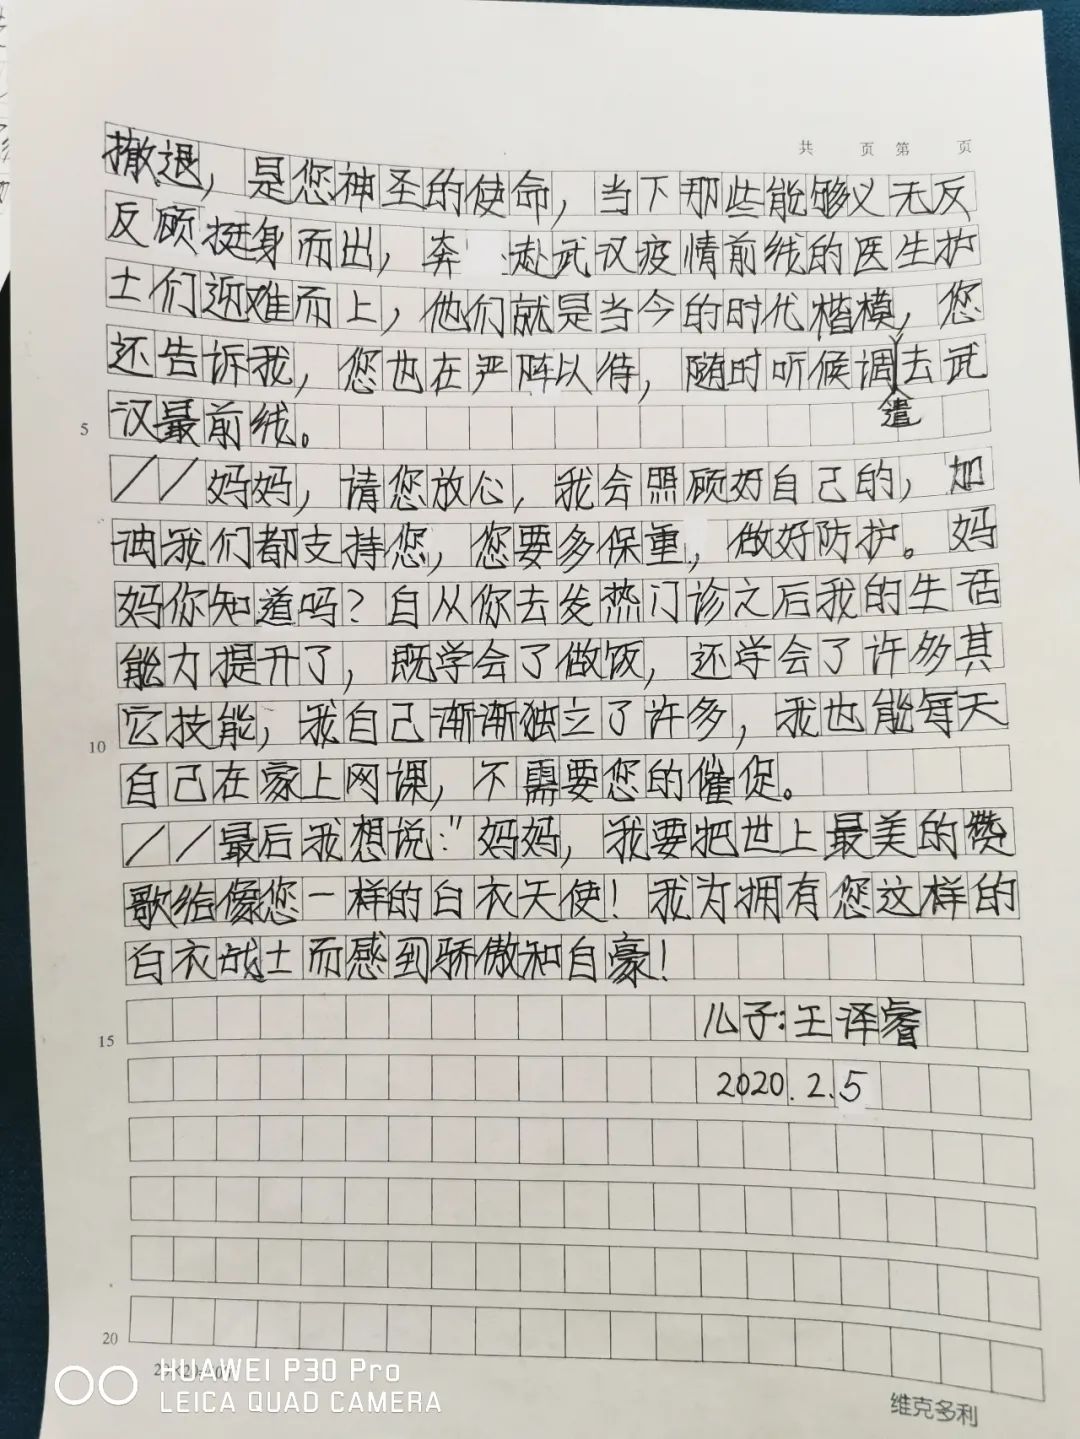 共 页 第 页
撤退，是您神圣的使命，当下那些能够义无反
反顾挺身而出，奔赴武汉疫情前线的医生护
士们迎难而上，他们就是当今的时代楷模，您
还告诉我，您也在严阵以待，随时听候调遣去武
5 汉最前线。
//妈妈，请您放心，我会照顾好自己的，加
油我们都支持您，您要多保重，做好防护。妈
妈你知道吗？自从你去发热门诊之后我的生活
能力提升了，既学会了做饭，还学会了许多其
10 它技能，我自己渐渐独立了许多，我也能每天
自己在家上网课，不需要您的催促。
//最后我想说："妈妈，我要把世上最美的赞
歌给像您一样的白衣天使！我为拥有您这样的
白衣战士而感到骄傲和自豪！
15 儿子：王泽睿
2020.2.5
20
HUAWEI P30 Pro
LEICA QUAD CAMERA
维克多利